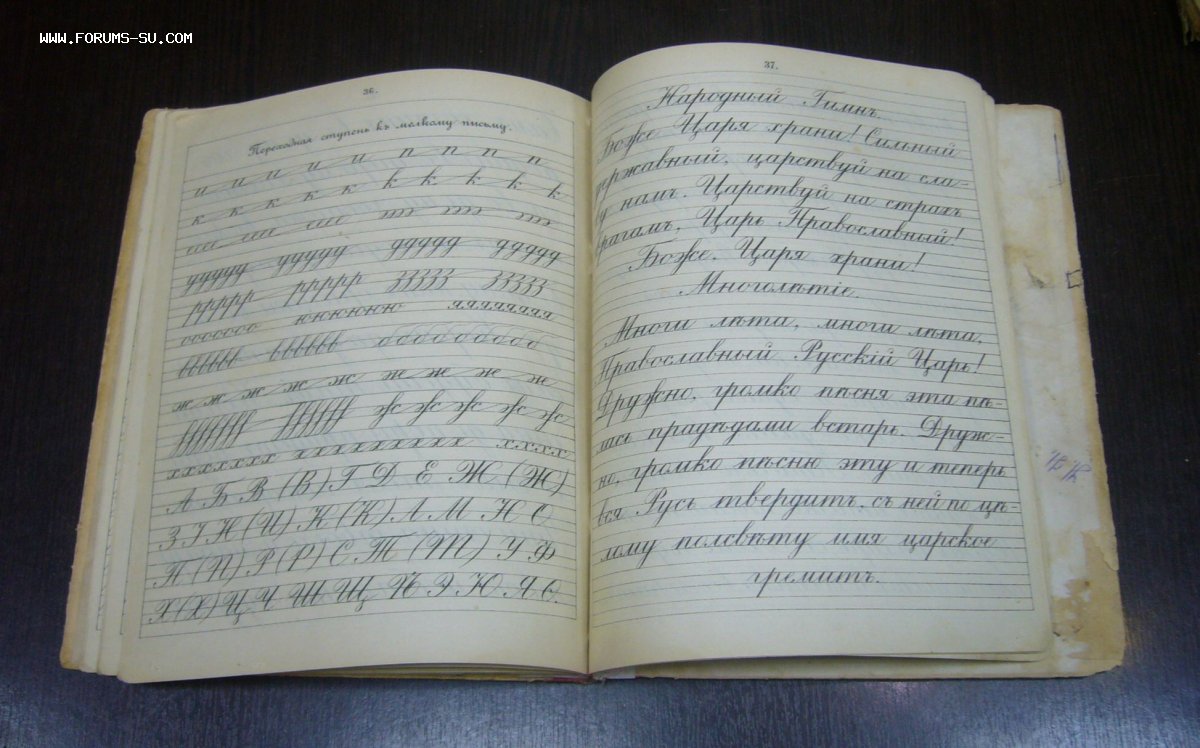 WWW.FORUMS-SU.COM
36.
Переходная ступень къ мелкому письму.
и и и и и п п п п
к к к к к k k k k k
ууууу ууууу ддддд ддддд
ррррр ррррр ззззз ззззз
ооооооо юююююю яяяяяяяя
вввввв вввввв ббббббббб
ж ж ж ж ж ж ж ж
ххххххх ххххххххх хххх
А Б В (В) Г Д Е Ж (Ж)
З І И (И) К (К) Л М Н О
П (П) Р (Р) С Т (Т) У Ф
Х (Х) Ц Ч Ш Щ Ѣ Э Ю Я Ѳ.
37.
Народный Гимнъ.
Боже Царя храни! Сильный
державный, царствуй на сла-
ву намъ. Царствуй на страхъ
врагамъ, Царь Православный!
Боже, Царя храни!
Многолѣтіе.
Многи лѣта, многи лѣта,
Православный Русскій Царь!
Дружно, громко пѣсня эта пѣ-
лась прадѣдами встарь. Друж-
но, громко пѣсню эту и теперь
вся Русь твердитъ, съ ней по цѣ-
лому полсвѣту имя царское
гремитъ.